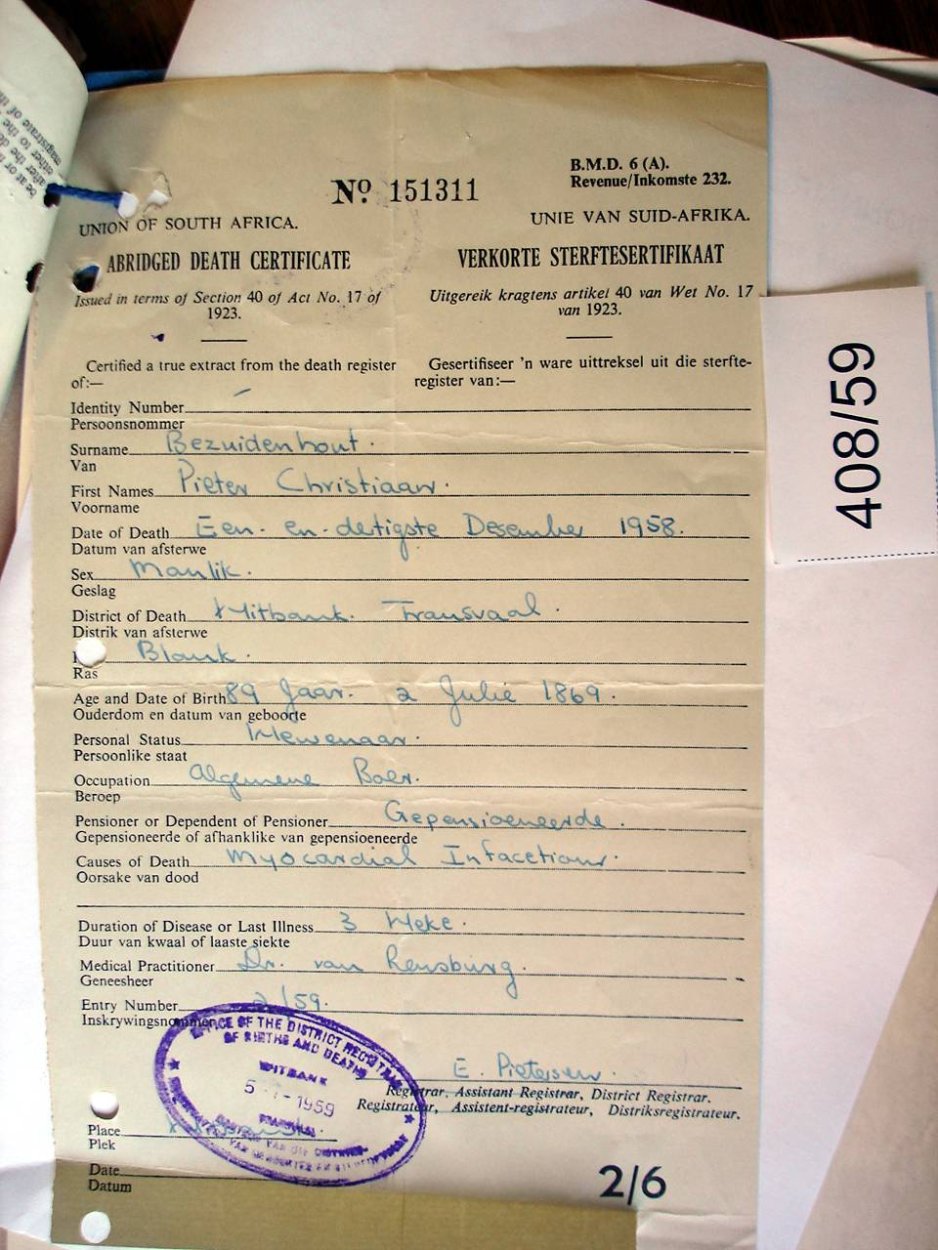 be at or n
after the de
either to the
magistrate of th
No. 151311
B.M.D. 6 (A).
Revenue/Inkomste 232.
UNION OF SOUTH AFRICA.
UNIE VAN SUID-AFRIKA.
ABRIDGED DEATH CERTIFICATE
VERKORTE STERFTESERTIFIKAAT
Issued in terms of Section 40 of Act No. 17 of
1923.
Uitgereik kragtens artikel 40 van Wet No. 17
van 1923.
Certified a true extract from the death register
of:—
Gesertifiseer 'n ware uittreksel uit die sterfte-
register van:—
Identity Number –
Persoonsnommer
Surname Bezuidenhout.
Van
First Names Pieter Christiaan.
Voorname
Date of Death Een-en-dertigste Desember 1958.
Datum van afsterwe
Sex Manlik.
Geslag
District of Death Witbank. Transvaal.
Distrik van afsterwe
Blank.
Ras
Age and Date of Birth 89 Jaar. 2 Julie 1869.
Ouderdom en datum van geboorte
Personal Status Wewenaar.
Persoonlike staat
Occupation Algemene Boer.
Beroep
Pensioner or Dependent of Pensioner Gepensioeneerde.
Gepensioneerde of afhanklike van gepensioeneerde
Causes of Death Myocardial Infacetion.
Oorsake van dood
Duration of Disease or Last Illness 3 Weke.
Duur van kwaal of laaste siekte
Medical Practitioner Dr. van Rensburg.
Geneesheer
Entry Number 2/59.
Inskrywingsnommer
OFFICE OF THE DISTRICT REGISTRAR
OF BIRTHS AND DEATHS
WITBANK
5 - 1 - 1959
TRANSVAAL
E. Pietersen.
Registrar, Assistant Registrar, District Registrar.
Registrateur, Assistent-registrateur, Distriksregistrateur.
Place
Plek
Date
Datum
2/6
408/59